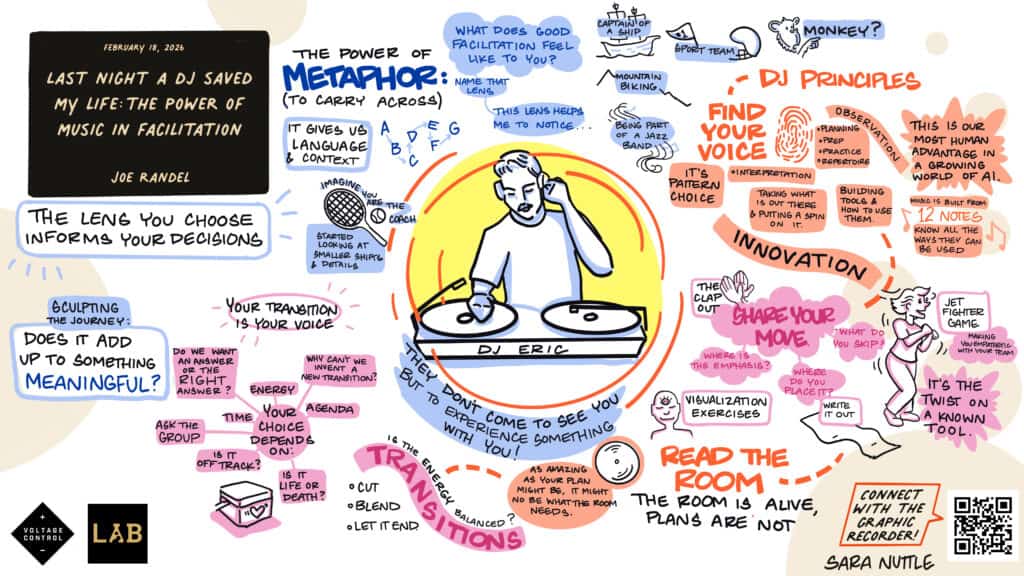 FEBRUARY 18, 2026
LAST NIGHT A DJ SAVED
MY LIFE: THE POWER OF
MUSIC IN FACILITATION
JOE RANDEL
THE LENS YOU CHOOSE
INFORMS YOUR DECISIONS
THE POWER OF
METAPHOR:
(TO CARRY ACROSS)
IT GIVES US
LANGUAGE
& CONTEXT
A
B
D
C
E
F
G
IMAGINE YOU
ARE THE
COACH
STARTED
LOOKING AT
SMALLER SHIFTS
& DETAILS
WHAT DOES GOOD
FACILITATION FEEL
LIKE TO YOU?
NAME THAT
LENS
THIS LENS HELPS
ME TO NOTICE...
CAPTAIN OF
A SHIP
SPORT TEAM
MONKEY?
MOUNTAIN
BIKING
BEING PART
OF A JAZZ
BAND
DJ PRINCIPLES
FIND
YOUR
VOICE
OBSERVATION
•PLANNING
•PREP
•PRACTICE
•REPERTOIRE
•INTERPRETATION
IT'S
PATTERN
CHOICE
TAKING WHAT
IS OUT THERE
& PUTTING A SPIN
ON IT.
BUILDING
TOOLS &
HOW TO USE
THEM.
THIS IS OUR
MOST HUMAN
ADVANTAGE IN
A GROWING
WORLD OF AI.
MUSIC IS BUILT FROM
12 NOTES
KNOW ALL THE
WAYS THEY CAN
BE USED
INNOVATION
DJ ERIC
THEY DON'T COME TO SEE YOU
BUT TO EXPERIENCE SOMETHING
WITH YOU!
THE
CLAP
OUT
SHARE YOUR
MOVE.
WHAT DO
YOU SKIP?
WHERE IS
THE EMPHASIS?
WHERE
DO YOU
PLACE IT?
JET
FIGHTER
GAME
MAKING
YOU EMPATHETIC
WITH YOUR TEAM
IT'S THE
TWIST ON
A KNOWN
TOOL.
VISUALIZATION
EXERCISES
WRITE
IT OUT
SCULPTING
THE JOURNEY:
DOES IT ADD
UP TO SOMETHING
MEANINGFUL?
YOUR TRANSITION
IS YOUR VOICE
DO WE WANT
AN ANSWER
OR THE
RIGHT
ANSWER?
WHY CAN'T WE
INVENT A
NEW TRANSITION?
ENERGY
TIME
YOUR
CHOICE
DEPENDS
ON:
AGENDA
ASK THE
GROUP
IS IT
OFF TRACK?
IS IT
LIFE OR
DEATH?
TRANSITIONS
IS THE ENERGY
BALANCED?
CUT
BLEND
LET IT END
AS AMAZING
AS YOUR PLAN
MIGHT BE, IT MIGHT
NO BE WHAT THE ROOM
NEEDS.
READ THE
ROOM
THE ROOM IS ALIVE,
PLANS ARE NOT
CONNECT
WITH THE
GRAPHIC
RECORDER!
SARA NUTTLE
VOLTAGE
CONTROL
LAB